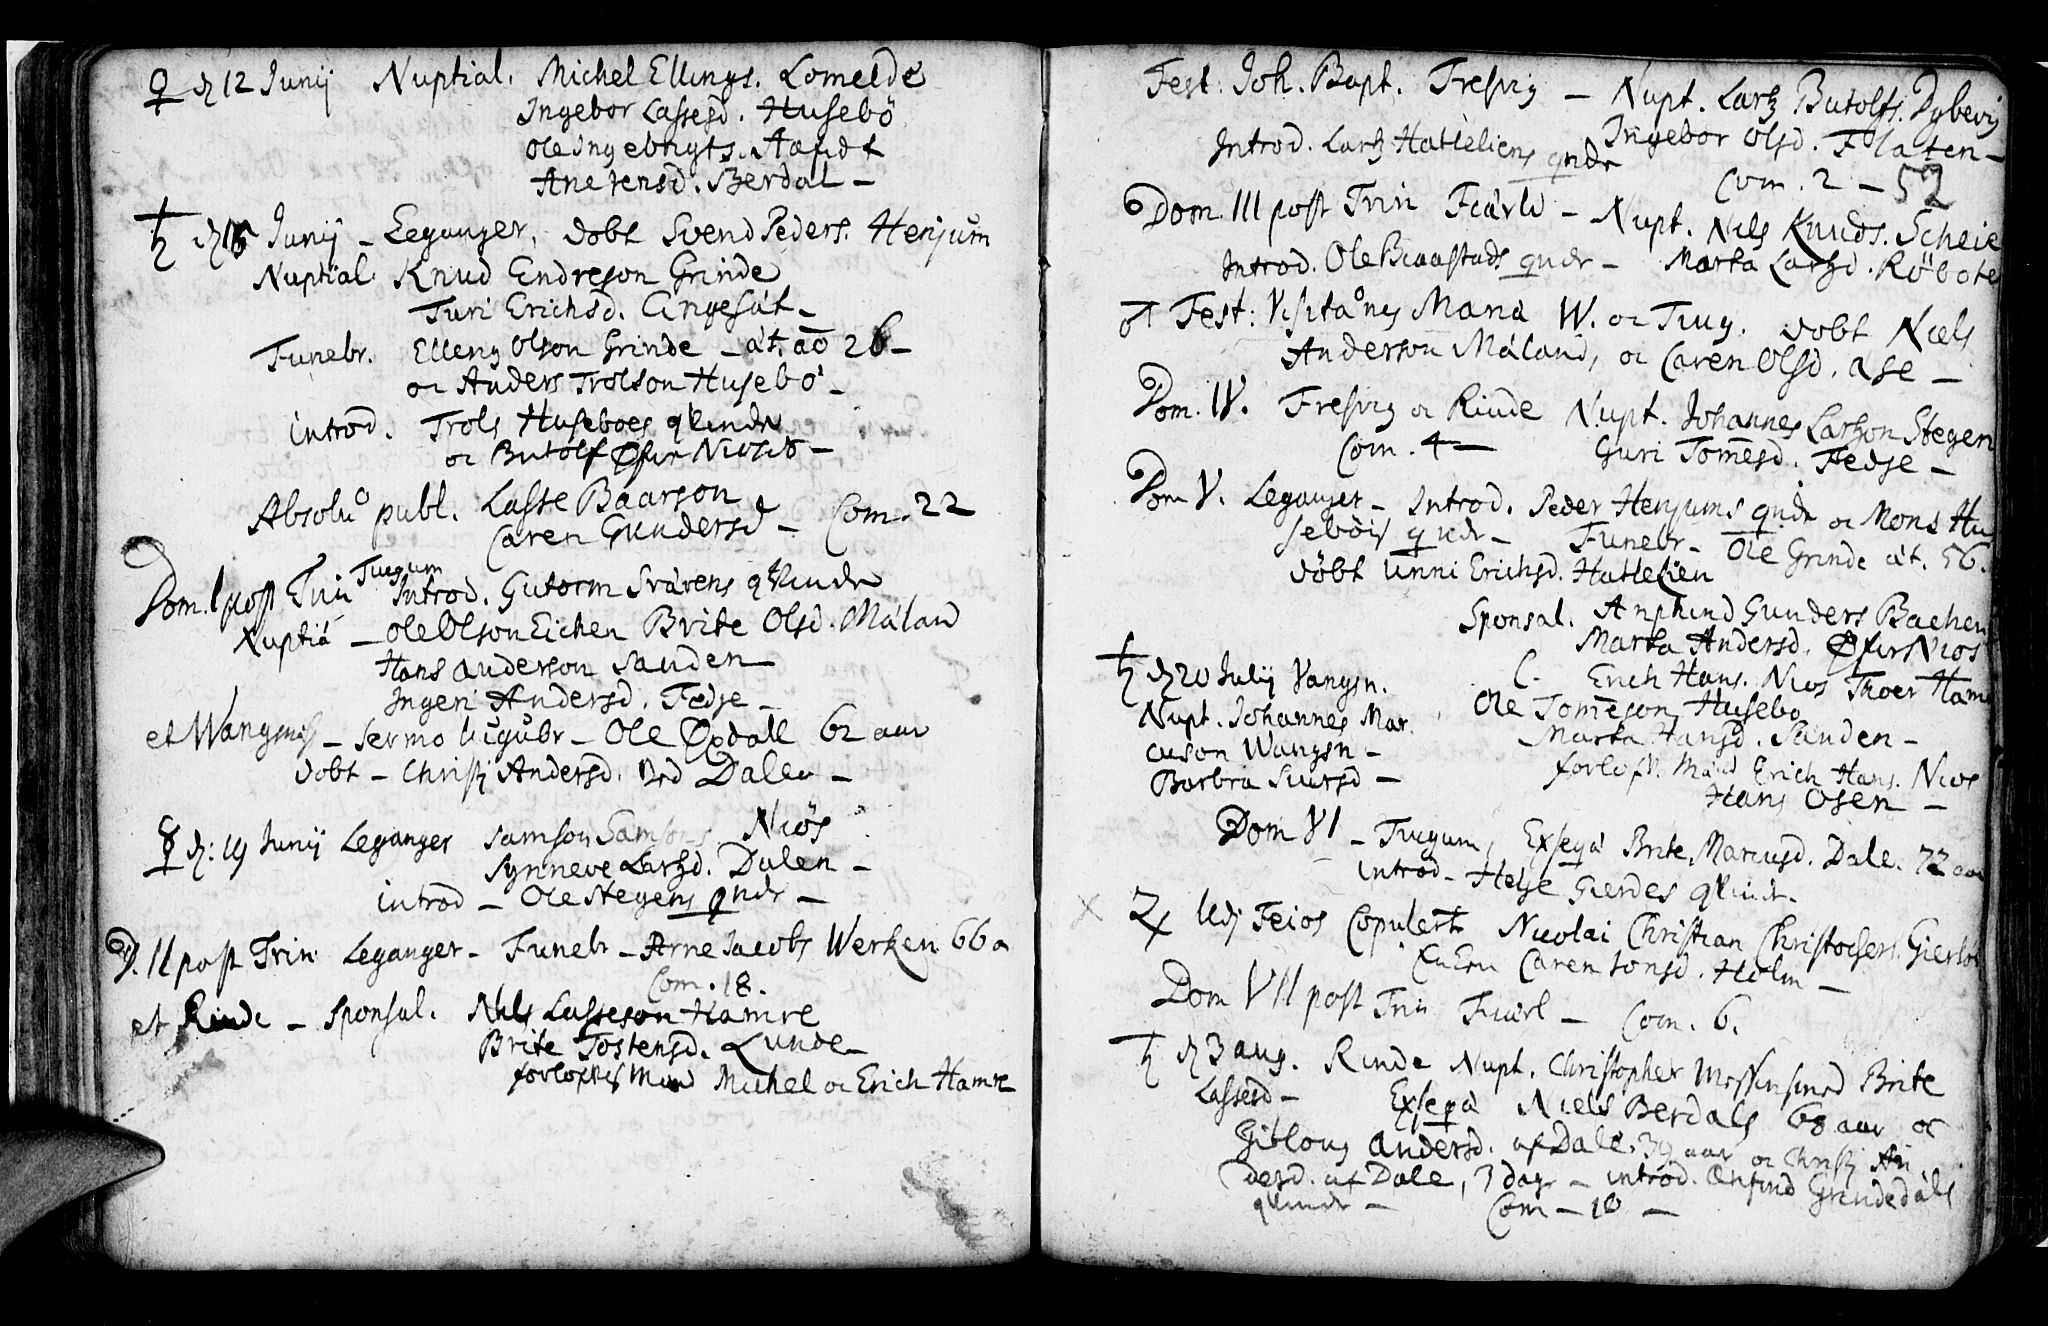 ♀ d 12 Junij Nuptial. Michel Ellings. Lomelde
Ingebor Lassesd. Husebö
Ole Ingebrigts.
Ane Jensd. Berdal –
♄ d 15 Junij – Leganger, döbt Svend Peders. Henjum
Nuptial. Knud Endreson Grinde
Turi Erichsd. Engesät –
Funebr. Elleng Olson Grinde – ät. ao 26 –
oc Anders Trolson Husebö –
introd. Trols Huseboes qvinde
oc Butolf Øfre Niøs –
Absolu publ. Lasse Baarson
Caren Gundersd – Com. 22
Dom. I post Trin Tiugum Introd. Gutorm Svärens qvinde
Nuptiä – Ole Olson Eichen Brite Olsd. Mäland
Hans Anderson Sanden
Ingeri Andersd. Fedse –
et Wangsnes – Sermo lugubr – Ole Øxdall 62 aar
döbt – Christj Andersd. Dalen –
☿ d: 19 Junij Leganger Samson Samsons Niøs
Synneve Larsd. Dalen –
introd – Ole Stegens qndr –
D. II post Trin Leganger – Funebr – Arne Jacobs Werken 66 a
Com. 18.
et Rinde – Sponsal. Niels Lasseson Hamre
Brite Tostensd. Lunde –
forlofvis Mænd Michel oc Erich Hamre
Fest. Joh. Bapt. Fresvig – Nupt. Lars Butolfs. Dybevig
Ingebor Olsd. Flaten –
Introd. Lars Hatleliens qndr Com. 2 – 52
Dom. III post Trin Fiärld – Nupt. Niels Knuds. Scheie
Introd. Ole Biaastads qndr – Marta Larsd. Röbote
Fest: Visitatönis Mariä W. oc Tiug. döbt Niels
Anderson Mäland, oc Caren Olsd. ase –
Dom. IV. Fresvig oc Rinde Nupt. Johannes Larson Stegen
Com. 4 – Guri Tomesd. Fedse –
Dom V. Leganger – Introd. Peder Henjums qndr oc Mons Hu
seböis qndr – Funebr – Ole Grinde ät. 56.
döbt Unni Erichsd. Hatlelien
Sponsal. Anphind Gunders Bachen
Marta Andersd. Øfre Niøs
♄ d 20 Julij Vangsn. C. Erich Hans. Niøs Thoer Hamr
Nupt. Johannes Mar. Ole Tomeson Husebo
cuson Wangsn – Marta Hansd. Sanden –
Barbra Siursd – forlofv. Mänd Erich Hans. Niøs
Hans Osen –
Dom VI – Tiugum, Exseqiä Brite Mariusd. Dale. 72 aar
introd – Helje Gierdes qvinde –
♃ Feios Copulerte Nicolai Christian Christophers. Gierlöf
Caren Jonsd. Holm –
Dom VII post Trin Fiärl – Com. 6.
♄ d 3 aug. Rinde Nupt. Christopher Brite
Lassesd – Exseqiä Niels Berdals 68 aar oc
Gibloug Andersd. af Dale, 39 aar oc Christj An
dersd. af Dale, 3 dage – introd. Anfind Grindedäls
qvinde – Com – 10 –